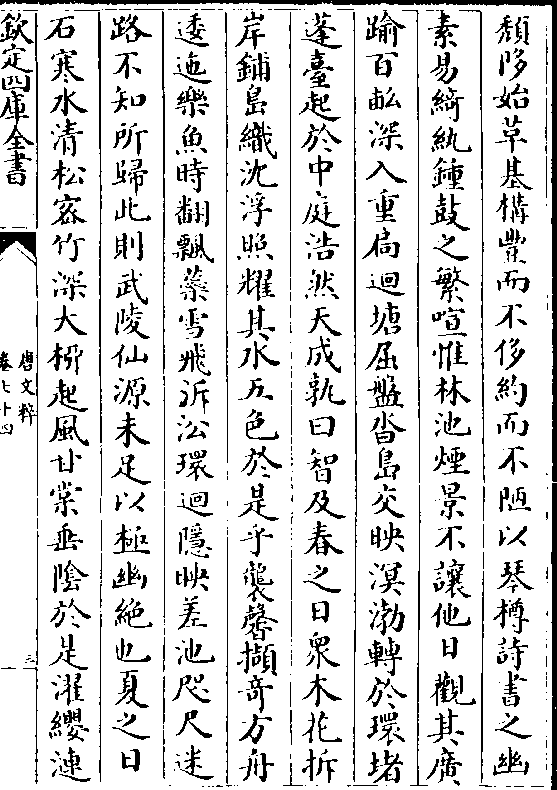 頽陊始草基構豐而不侈約而不陋以琴樽詩書之幽
素易綺紈鍾鼓之繁喧惟林池煙景不讓他日觀其廣
踰百畝深入重扃迴塘屈盤沓島交映溟渤轉於環堵
蓬臺起於中庭浩然天成孰曰智及春之日衆木花拆
岸鋪島織沈浮照耀其水五色於是乎襲馨擷奇方舟
逶迤樂魚時翻飄蘂雪飛泝㳂環迴隱映差池咫尺迷
路不知所歸此則武陵仙源未足以極幽絶也夏之日
石寒水清松宻竹深大栁起風甘棠垂陰於是濯纓漣
欽定四庫全書
唐文粹
卷七十四
三